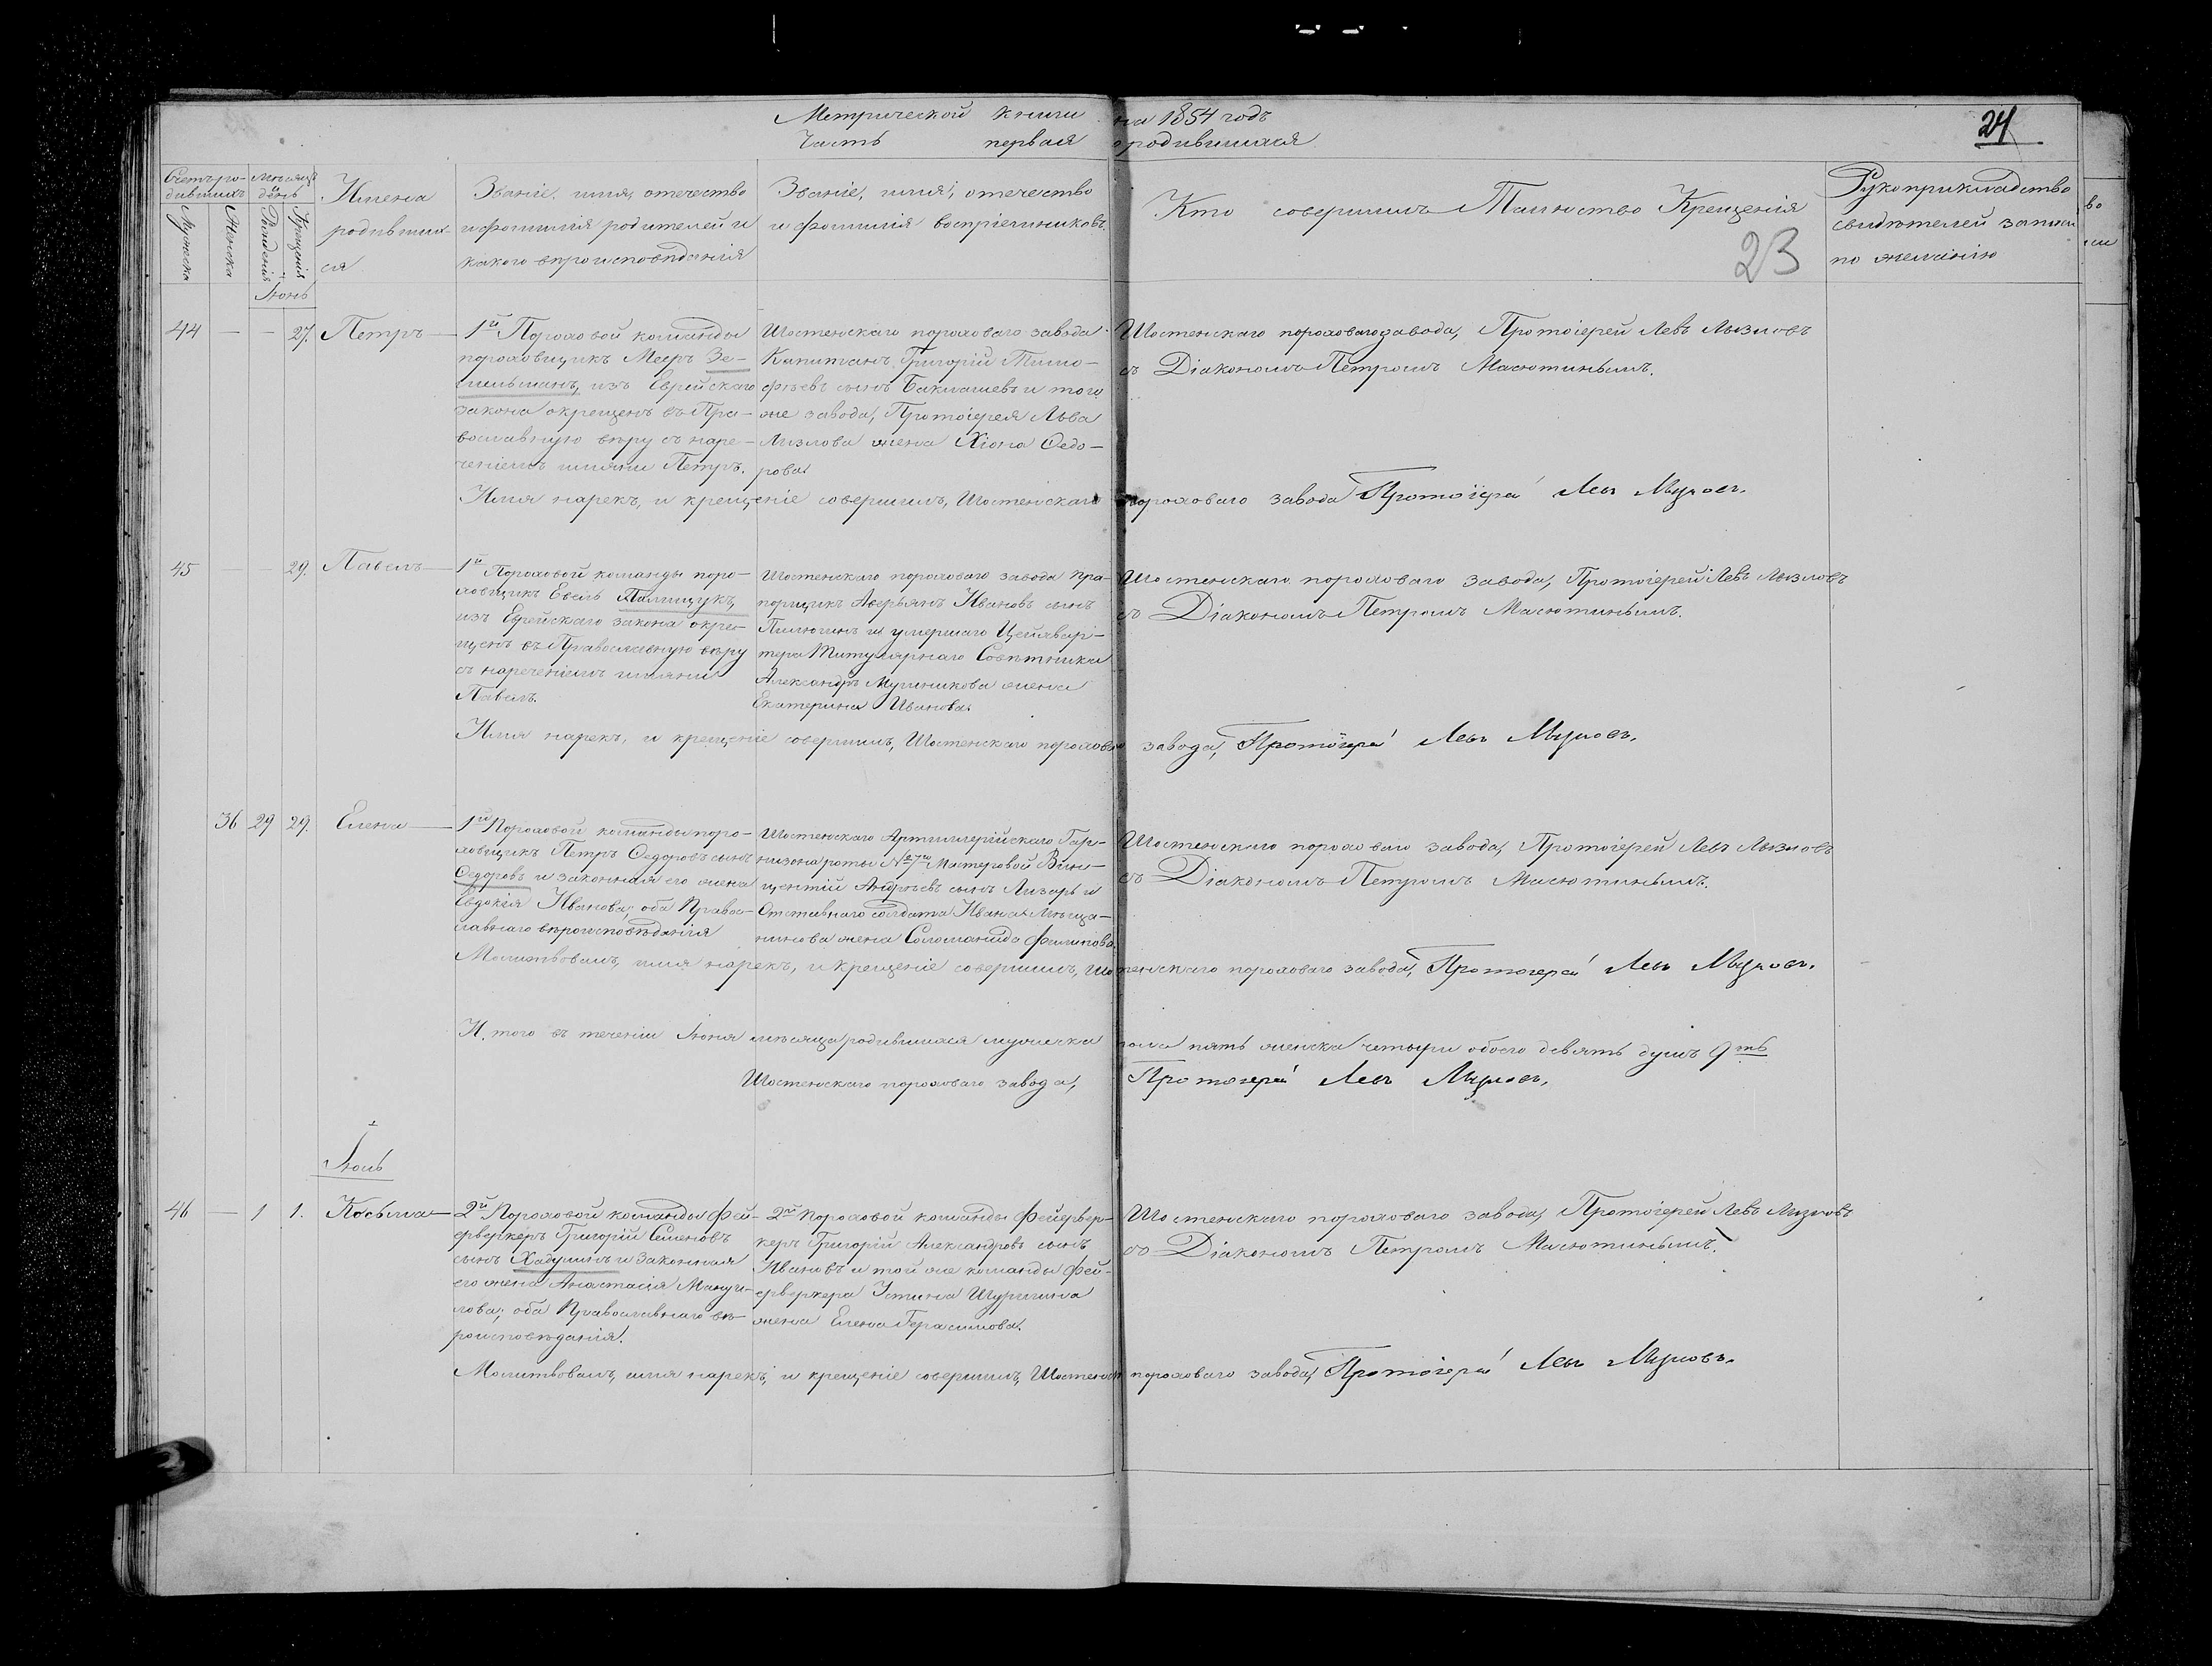 Метрической книги на 1854 годъ
Часть первая о родившихся
24
23
Счетъ ро-
дившихъ
Мужеска
Женска
Мѣсяцъ
день
Рожденія
Крещенія
Имена
родивших-
ся
Званіе, имя, отечество
и фамилія родителей и
какого вѣроисповѣданія
Званіе, имя, отечество
и фамилія воспріемниковъ.
Кто совершилъ Таинство Крещенія
Рукоприкладство
свидѣтелей записи
по желанію
Іюнь
44 — — 27. Петръ
1й Пороховой команды
пороховщикъ Мееръ Зе-
, изъ Еврейскаго
закона окрещенъ въ Пра-
вославную вѣру съ наре-
ченіемъ имяни Петръ.
Шостенскаго пороховаго завода
Капитанъ Григорій Тимо-
фѣевъ сынъ Бакмашевъ и того
же завода, Протоіерея Льва
Лызлова жена Хіона Ѳедо-
рова.
Шостенскаго пороховаго завода, Протоіерей Левъ Лызловъ
съ Діакономъ Петромъ Масютинымъ.
Имя нарекъ, и крещеніе совершилъ, Шостенскаго пороховаго завода Протоіерей Левъ Лызловъ.
45 — — 29. Павелъ
1й Пороховой команды поро-
ховщикъ Евель Палищукъ,
изъ Еврейскаго закона окре-
щенъ въ Православную вѣру
съ нареченіемъ имяни
Павелъ.
Шостенскаго пороховаго завода Пра-
порщикъ Аверьянъ Ивановъ сынъ
Пилюгинъ и умершаго Цейхвар-
тера Титулярнаго Совѣтника
Александра жена
Екатерина Иванова.
Шостенскаго пороховаго завода, Протоіерей Левъ Лызловъ
съ Діакономъ Петромъ Масютинымъ.
Имя нарекъ, и крещеніе совершилъ, Шостенскаго пороховаго завода, Протоіерей Левъ Лызловъ.
36 29 29. Елена
1й Пороховой команды поро-
ховщикъ Петръ Ѳедоровъ сынъ
Ѳедоровъ и законная его жена
Евдокія Иванова; оба Правос-
лавнаго вѣроисповѣданія
Шостенскаго Артиллерійскаго Гар-
низона роты № 27го Мастеровой Вин-
центій Андреевъ сынъ Лизарь и
Отставнаго солдата Ивана Мѣща-
нинова жена Соломанида Филипова.
Шостенскаго пороховаго завода, Протоіерей Левъ Лызловъ
съ Діакономъ Петромъ Масютинымъ.
Молитвовалъ, имя нарекъ, и крещеніе совершилъ, Шостенскаго пороховаго завода, Протоіерей Левъ Лызловъ.
И того въ теченіи Іюня мѣсяца родившихся мужеска пола пять женска четыри обоего девять душъ 9ть
Шостенскаго пороховаго завода, Протоіерей Левъ Лызловъ.
Іюль
46 — 1 1. Косьма
2й Пороховой команды Фей-
ерверкеръ Григорій Семеновъ
сынъ Хадулинъ и законная
его жена Анастасія Мануи-
лова; оба Православнаго вѣ-
роисповѣданія.
2й Пороховой команды Фейервер-
керъ Григорій Александровъ сынъ
Ивановъ и той же команды Фей-
ерверкера Устина Шурыгина
жена Елена Герасимова.
Шостенскаго пороховаго завода, Протоіерей Левъ Лызловъ
съ Діакономъ Петромъ Масютинымъ.
Молитвовалъ, имя нарекъ, и крещеніе совершилъ, Шостенск пороховаго завода, Протоіерей Левъ Лызловъ.